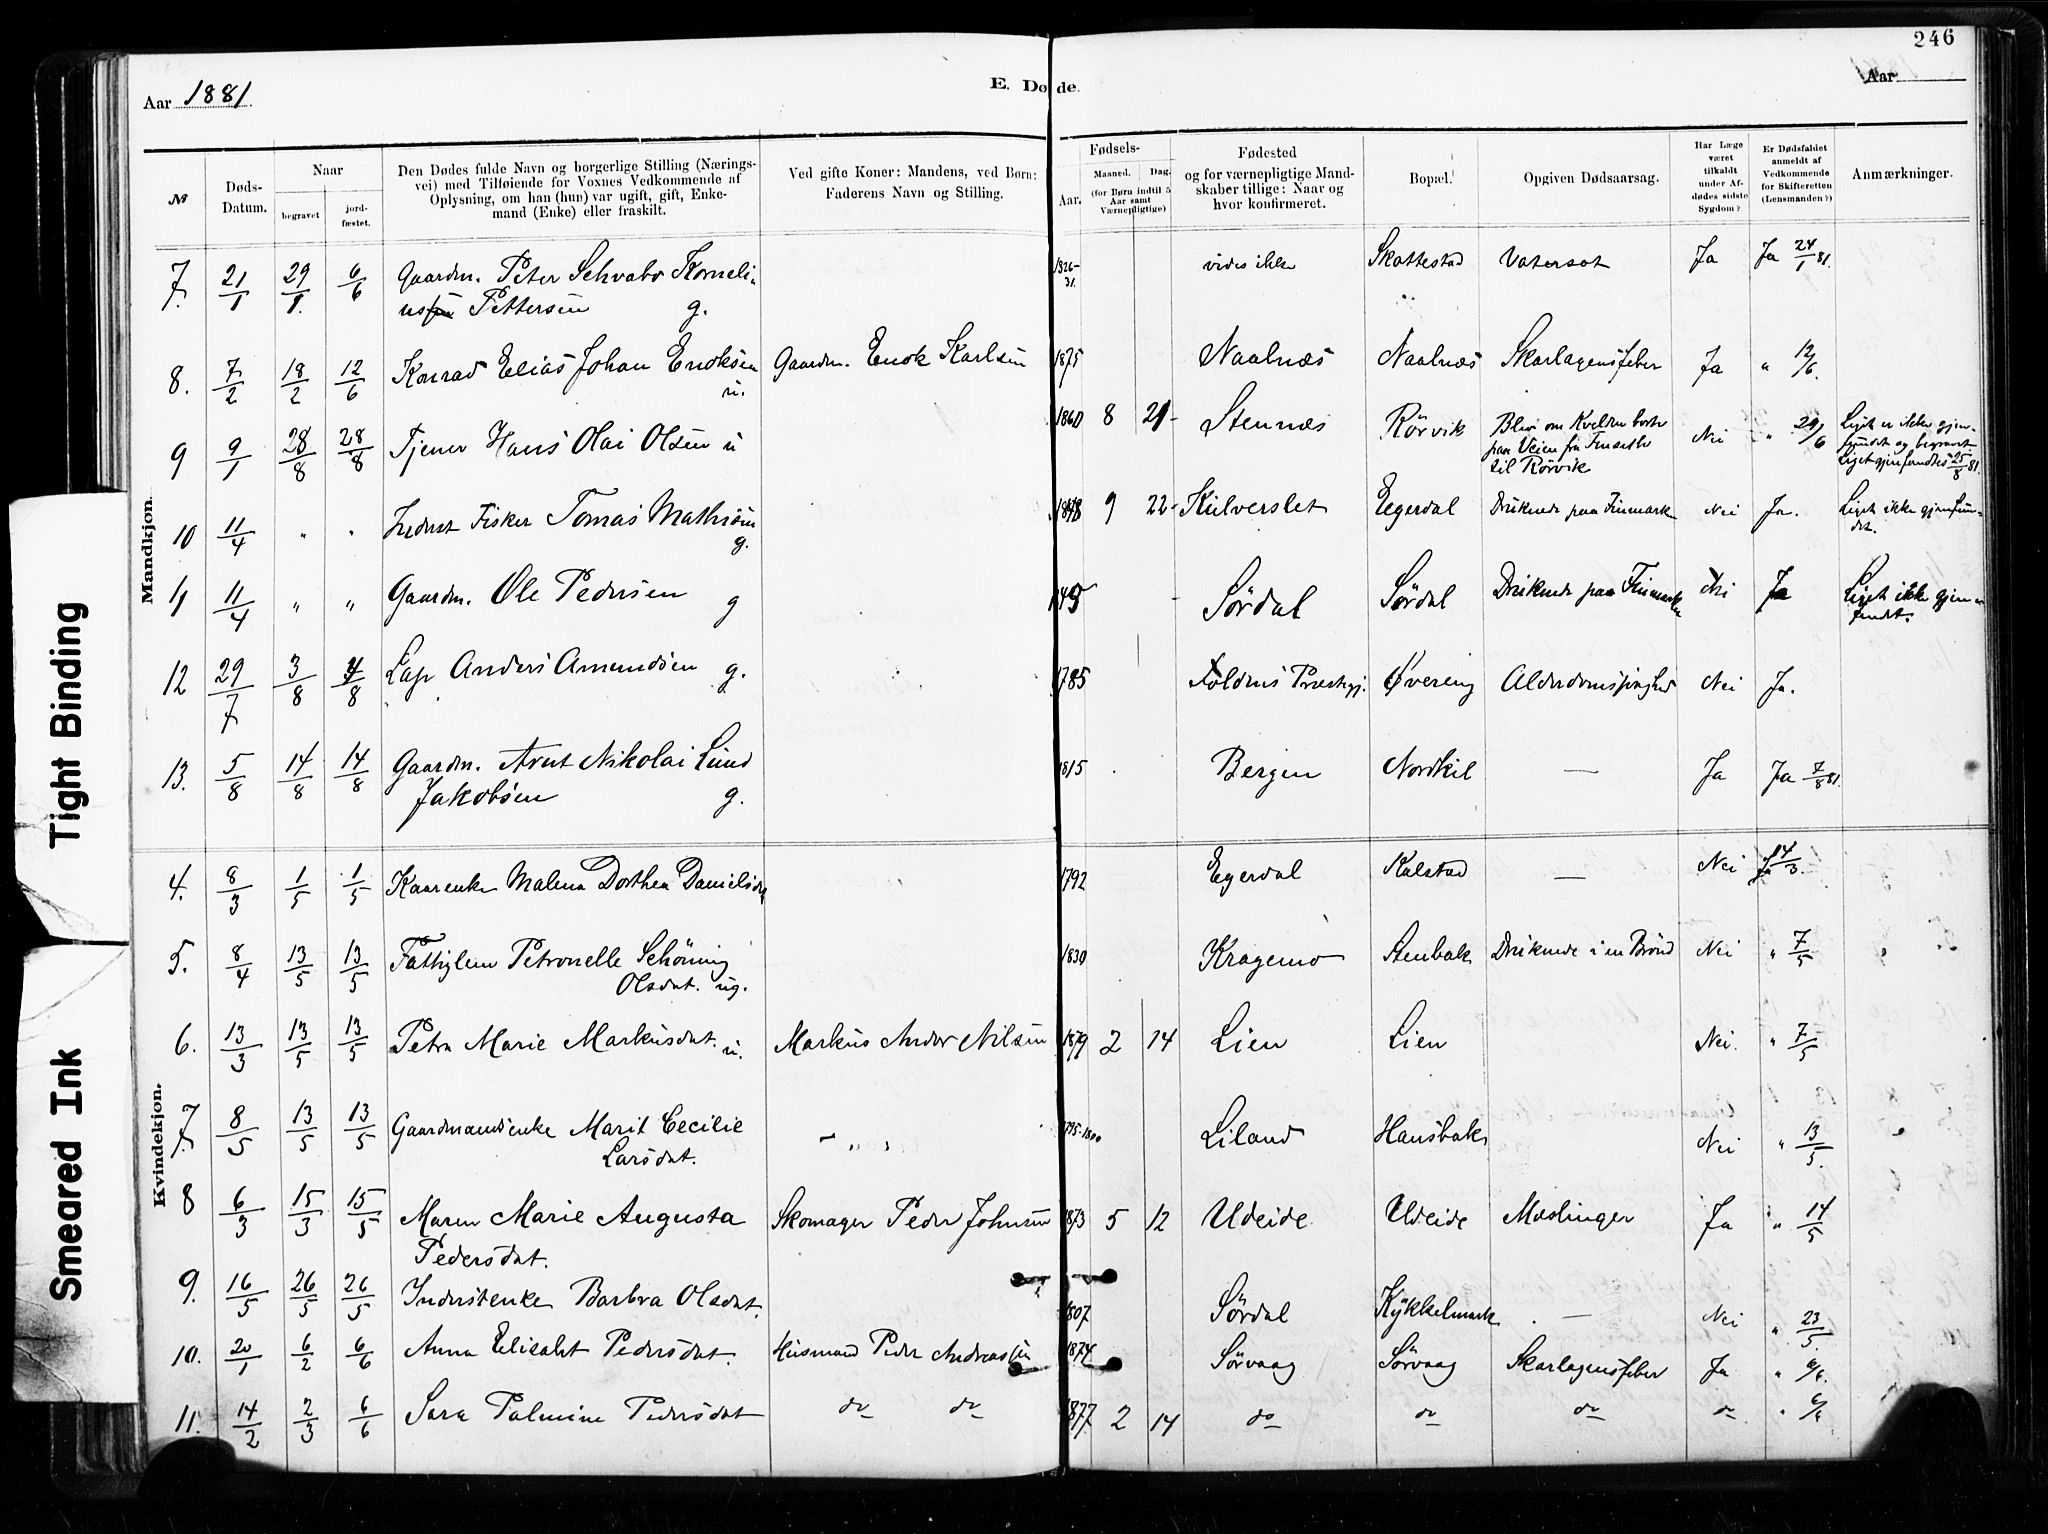 246
Aar 1881.
E. Døde.
Aar
Tight Binding
Smeared Ink
Mandkjøn.
Kvindekjøn.
№ | Døds-Datum. | Naar begravet | jordfæstet. | Den Dødes fulde Navn og borgerlige Stilling (Næringsvei) med Tilføiende for Voxnes Vedkommende af Oplysning, om han (hun) var ugift, gift, Enkemand (Enke) eller fraskilt. | Ved gifte Koner: Mandens, ved Børn: Faderens Navn og Stilling. | Fødsels- Aar. | Maaned. | Dag. (for Børn indtil 5 Aar samt Værnepligtige) | Fødested og for værnepligtige Mandskaber tillige: Naar og hvor konfirmeret. | Bopæl. | Opgiven Dødsaarsag. | Har Læge været tilkaldt under Afdødes sidste Sygdom? | Er Dødsfaldet anmeldt af Vedkommende for Skifteretten (Lensmanden?) | Anmærkninger.
7. 21/1 29/1. 6/6 Gaardm. Peter Schvabo Kornelius Pettersen g. 1826-31. vides ikke Skattestad Vatersot Ja Ja 24/1 81.
8. 7/2 18/2 12/6 Konrad Elias Johan Enoksen u. Gaardm. Enok Karlsen 1875 Naalnæs Naalnæs Skarlagensfeber Ja " 12/6.
9 9/1 28/8 28/8 Tjener Hans Olai Olsen u 1860 8 21- Stennæs Rörvik Blev om Kvelden borte paa Veien fra til Rörvik Nei " 29/6 Liget er ikke gjenfundet og begravet Liget gjenfandtes 25/8 81.
10 11/4 " " Inderst Fisker Tomas Mathisen g. 1848 9 22- Kulverslet Eegerdal Druknede paa Finmarken Nei Ja. Liget ikke gjenfundet.
11 11/4 " " Gaardm. Ole Pedersen g Sördal Sördal Druknede paa Finmarken Nei Ja Liget ikke gjenfundet.
12 29/7 3/8 /8 Lap Anders Amundsen g. 1785 Foldens Præstegj. Øvereng Alderdomssvaghed Nei Ja.
13. 5/8 14/8 14/8 Gaardm. Arnt Nikolai Lund Jakobsen g. 1815 Bergen Nordkil — Ja Ja 7/8 81.
4. 8/3 1/5 1/5 Kaarenke Malena Dorthea Danielsdt 1792 Egerdal Kalstad — Nei Ja 14/3.
5. 8/4 13/5 13/5 Fattiglem Petronelle Schöning Olsdat. ug. 1830 Kragemo Stenbak Druknede i en Brönd Nei " 7/5
6. 13/3 13/5 13/5 Petra Marie Markusdat. u. Markus Andor Nilsen 1879 2 14 Lien Lien Nei. " 7/5
7. 8/5 13/5 13/5 Gaardmandsenke Marit Cecilie Larsdat. — " " 1795-1800 Liland Hansbak Nei " 13/5.
8 6/3 15/3 15/5 Maren Marie Augusta Pedersdat. Skomager Peder Johnsen 1873 5 12 Udeide Udeide Mæslinger Ja " 14/5
9. 16/5 26/5 26/5 Inderstenke Barbra Olsdat. 1807 Sördal Kykkelmark — Nei " 23/5.
10. 20/1 6/2 6/6 Anna Elisabet Pedersdat. Husmand Peder Andreassen 1874 Sörvaag Sörvaag Skarlagensfeber Ja " 6/6.
11. 14/2 2/3 6/6 Sara Palmine Pedersdat do do 1877 2 14 do do do do " 6/6